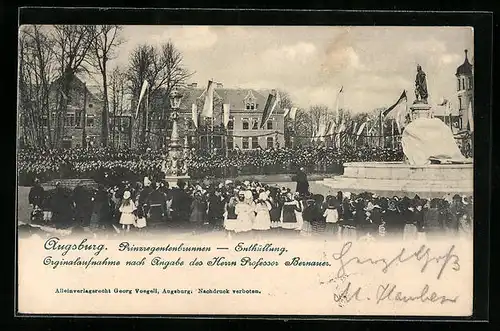 Augsburg. Prinzregentenbrunnen — Enthüllung.
Orginalaufnahme nach Angabe des Herrn Professor Bernauer.
Alleinverlagsrecht Georg Voegeli, Augsburg. Nachdruck verboten.
Herzl. Gruß